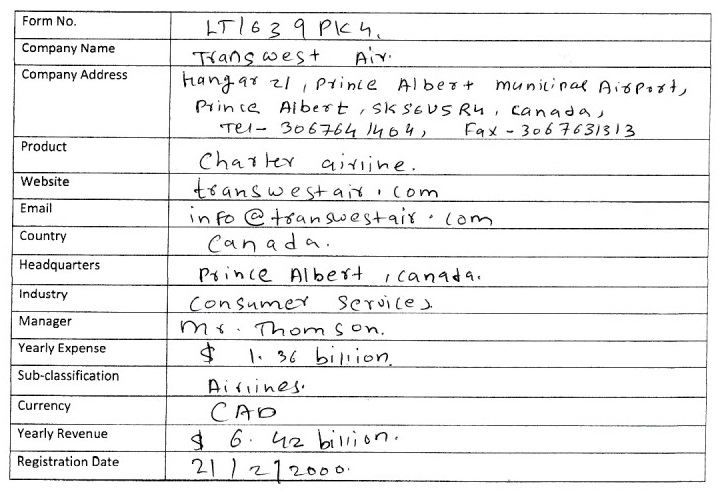 Form No. LT1639PK4.
Company Name Transwest Air.
Company Address Hangar 21, Prince Albert municipal Airport,
Prince Albert, SKS6V5R4, Canada,
Tel- 3067641404, Fax - 3067631313
Product Charter airline.
Website transwestair.com
Email info@transwestair.com
Country Canada.
Headquarters Prince Albert, Canada.
Industry Consumer Services.
Manager Mr. Thomson.
Yearly Expense $ 1.36 billion.
Sub-classification Airlines.
Currency CAD
Yearly Revenue $ 6.42 billion.
Registration Date 21/2/2000.